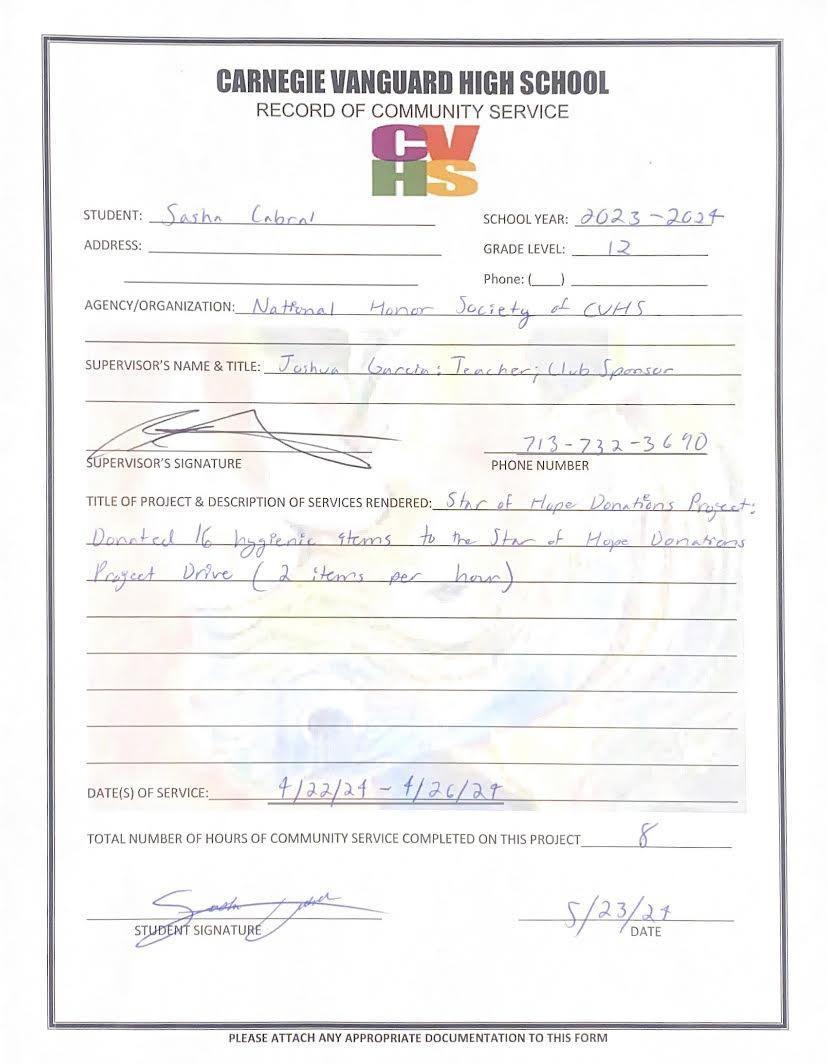 CARNEGIE VANGUARD HIGH SCHOOL
RECORD OF COMMUNITY SERVICE
CV
HS
STUDENT: Sasha Cabral SCHOOL YEAR: 2023-2024
ADDRESS: GRADE LEVEL: 12
Phone: (___)
AGENCY/ORGANIZATION: National Honor Society of CVHS
SUPERVISOR'S NAME & TITLE: Joshua Garcia: Teacher; Club Sponsor
713-732-3690
SUPERVISOR'S SIGNATURE PHONE NUMBER
TITLE OF PROJECT & DESCRIPTION OF SERVICES RENDERED: Star of Hope Donations Project:
Donated 16 hygienic items to the Star of Hope Donations
Project Drive (2 items per hour)
DATE(S) OF SERVICE: 4/22/24 - 4/26/24
TOTAL NUMBER OF HOURS OF COMMUNITY SERVICE COMPLETED ON THIS PROJECT 8
Sasha 5/23/24
STUDENT SIGNATURE DATE
PLEASE ATTACH ANY APPROPRIATE DOCUMENTATION TO THIS FORM